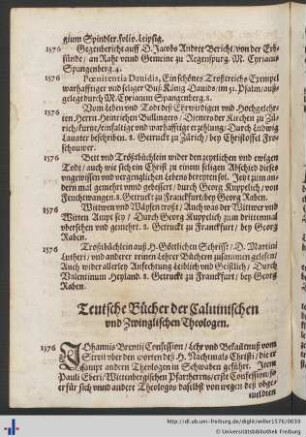 gium Spindler. folio. Leipsig.
1576 Gegenbericht auff D. Jacobs Andree Bericht / von der Erb-
sünde / an Raht vnnd Gemeine zu Regenspurg. M. Cyriacus
Spangenberg. 4.
1576 Pœnitentia Dauidis, Ein schönes Trostreichs Exempel
warhafftiger vnd seliger Buß König Dauids / im 51. Psalm / auß-
gelegt durch M. Cyriacum Spangenberg. 8.
1576 Vom Leben vnd Tod deß Erwirdigen vnd Hochgelehr-
ten Herrn Heinrichen Bullingers / Dieners der Kirchen zu Zü-
rich / kurtze / einfaltige vnd warhafftige erzehlung / Durch Ludwig
Lauater beschriben. 8. Getruckt zu Zürich / bey Christoffel Fro-
schouwer.
1576 Bett vnd Tröstbüchlein wider den zeytlichen vnd ewigen
Todt / auch wie sich ein Christ zu einem seligen Abschied dieses
vngewissen vnd vergenglichen Lebens bereyten sol. Jetzt zum an-
dern mal gemehrt vnnd gebessert / durch Georg Kuppelich / von
Feuchtwangen. 8. Getruckt zu Franckfurt / bey Georg Raben.
1576 Weitwen vnd Wäysen trost / Auch was der Witwer vnd
Witten Ampt sey / Durch Georg Kuppelich zum drittenmal
vbersehen vnd gemehrt. 8. Getruckt zu Franckfurt / bey Georg
Raben.
1576 Trostbüchlein auß H. Göttlichen Schrifft / D. Martini
Lutheri / vnd anderer reinen Lehrer Büchern zusammen gelesen /
Auch wider allerley Anfechtung leiblich vnd Geistlich / Durch
Valentinum Heyland. 8. Getruckt zu Franckfurt / bey Georg
Raben.
Teutsche Bücher der Caluinischen
vnd Zwinglischen Theologen.
1576 Johannis Brentii Confession / Lehr vnd Bekantnuß vom
Streit vber den worten deß H. Nachtmals Christi / die er
sampt andern Theologen in Schwaben geführt. Item
Pauli Eberi / Wittenbergischen Pfarrherrns / erste Confession / so
er für sich vnnd andere Theologos daselbst von wegen deß obge-
meldten
http://dl.ub.uni-freiburg.de/diglit/willer1576/0039
Universitätsbibliothek Freiburg